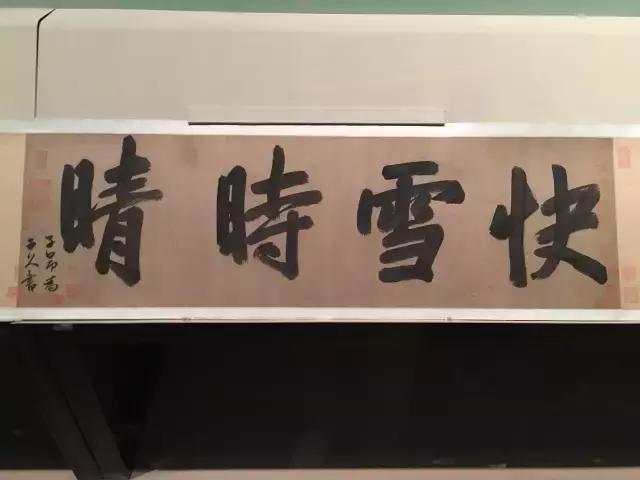 快雪時晴
子昂為
子久書